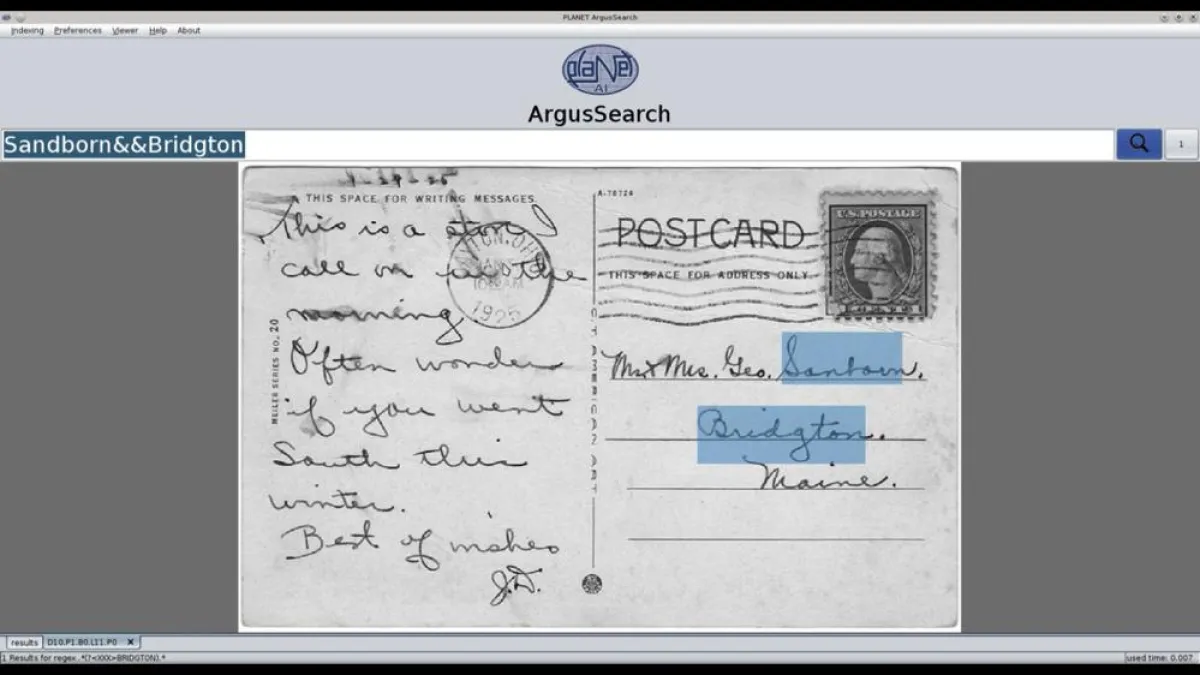 PLANET ArgusSearch
Indexing Preferences Viewer Help About
plaNet
AI
ArgusSearch
Sandborn&&Bridgton
1
THIS SPACE FOR WRITING MESSAGES.
This is a
call on
morning
Often wonder
if you went
South this
winter.
Best of wishes
J.D.
MEILER SERIES NO. 20
1925
A-70728
POSTCARD
THIS SPACE FOR ADDRESS ONLY.
U.S. POSTAGE
Mr & Mrs. Geo. Sanborn.
Bridgton.
Maine.
results D10.P1.B0.L11.P0 X
1 Results for regex .*(?<XXX>BRIDGTON).*
used time: 0.007